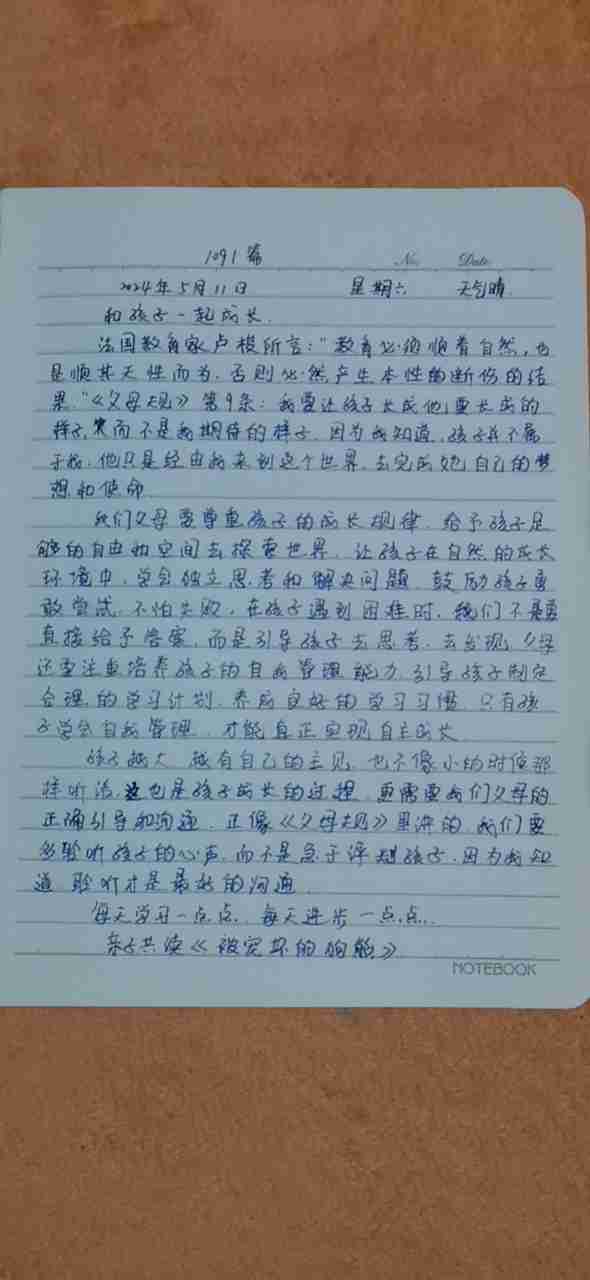 1091篇
No. Date
2024年5月11日 星期六 天气晴
和孩子一起成长.
法国教育家卢梭所言:"教育必须顺着自然,也
是顺其天性而为,否则必然产生本性断伤的结
果."《父母规》第9条:我要让孩子长成他要长成的
样子,而不是我期待的样子.因为我知道,孩子并不属
于我,他只是经由我来到这个世界,去完成她自己的梦
想和使命.
我们父母要尊重孩子的成长规律.给予孩子足
够的自由和空间去探索世界.让孩子在自然的成长
环境中,学会独立思考和解决问题.鼓励孩子勇
敢尝试.不怕失败,在孩子遇到困难时.我们不是要
直接给予答案.而是引导孩子去思考.去发现.父母
还要注重培养孩子的自我管理能力.引导孩子制定
合理的学习计划.养成良好的学习习惯.只有孩
子学会自我管理.才能真正实现自主成长.
孩子越大.越有自己的主见.也不像小幼时侯那
样听话,这也是孩子成长的过程.更需要我们父母的
正确引导和沟通.正像《父母规》里讲的.我们要
多聆听孩子的心声.而不是急于评判孩子.因为我知
道 聆听才是最好的沟通.
每天学习一点点.每天进步一点点...
亲子共读《被宠坏的狗熊》
NOTEBOOK